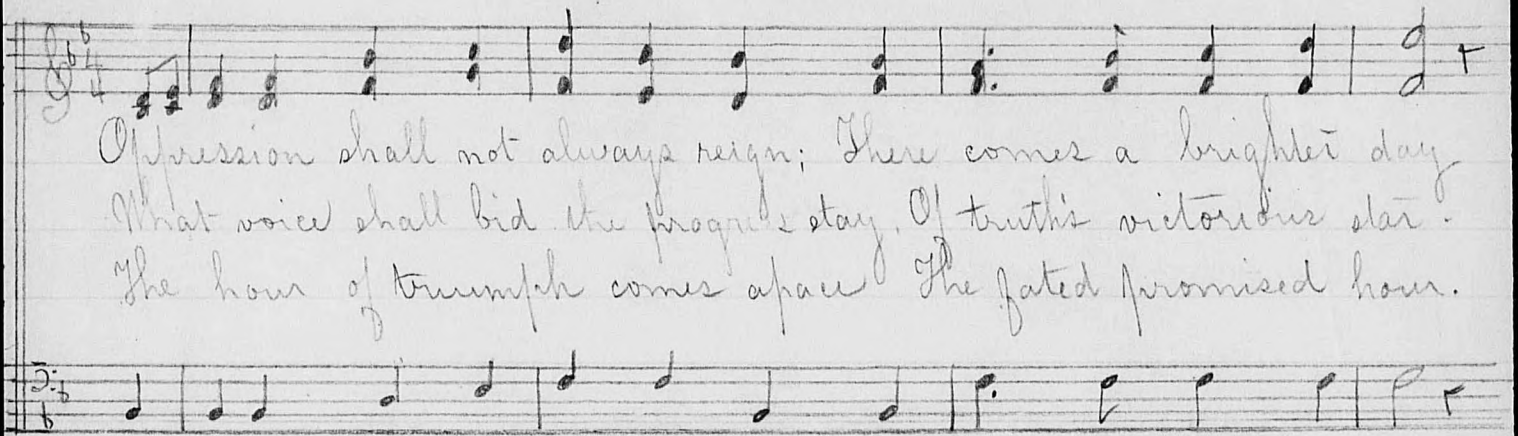 Oppression shall not always reign; There comes a brighter day
What voice shall bid the progress stay, Of truth's victorious star.
The hour of triumph comes apace The fated promised hour.